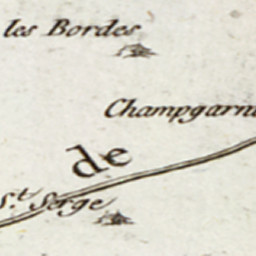 les Bordes
Champgarni
de
S.t Serge